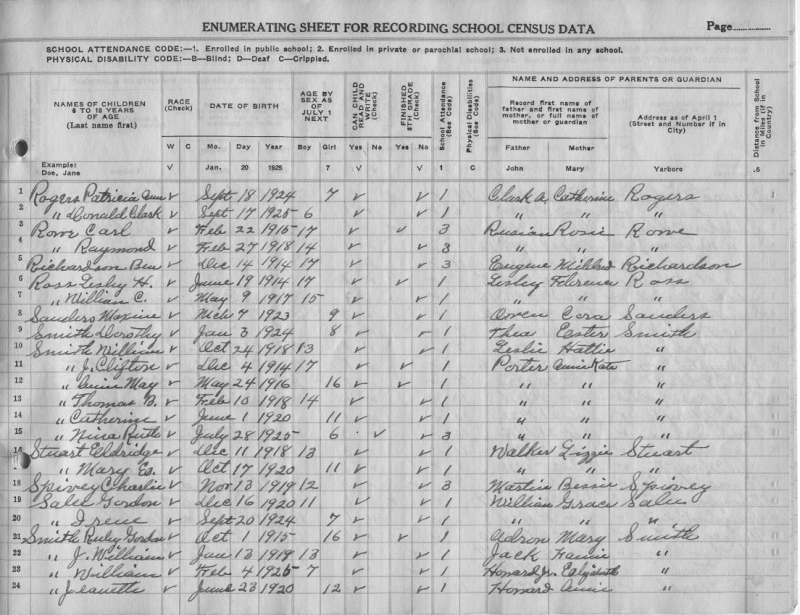 ENUMERATING SHEET FOR RECORDING SCHOOL CENSUS DATA Page
SCHOOL ATTENDANCE CODE:—1. Enrolled in public school; 2. Enrolled in private or parochial school; 3. Not enrolled in any school.
PHYSICAL DISABILITY CODE:—B—Blind; D—Deaf C—Crippled.
NAMES OF CHILDREN 6 TO 18 YEARS OF AGE (Last name first) RACE (Check) DATE OF BIRTH AGE BY SEX AS OF JULY 1 NEXT CAN CHILD READ AND WRITE (Check) FINISHED 8TH GRADE (Check) School Attendance (See Code) Physical Disabilities (See Code) NAME AND ADDRESS OF PARENTS OR GUARDIAN Distance from School in Miles (if in Country)
Record first name of father and first name of mother, or full name of mother or guardian Address as of April 1 (Street and Number if in City)
W C Mo. Day Year Boy Girl Yes No Yes No Father Mother
Example: Doe, Jane √ Jan. 20 1925 7 √ √ 1 C John Mary Yarboro .5
1 Rogers Patricia Ann √ Sept 18 1924 7 √ √ 1 Clark A. Catherine Rogers
2 " Donald Clark √ Sept 17 1925 6 √ √ 1 " " "
3 Rowe Carl √ Feb 22 1915 17 √ √ 3 Rosie Rowe
4 " Raymond √ Feb 27 1918 14 √ √ 3 " " "
5 Richardson Ben √ Dec 14 1914 17 √ √ 3 Eugene Mildred Richardson
6 Ross Lesley H. √ June 19 1914 17 √ √ 1 Lesley Florence Ross
7 " William C. √ May 9 1917 15 √ √ 1 " " "
8 Sanders Maxine √ Mch 7 1923 9 √ √ 1 Owen Cora Sanders
9 Smith Dorothy √ Jan 3 1924 8 √ √ 1 Thea Easter Smith
10 Smith William √ Oct 24 1918 13 √ √ 1 Leslie Hattie "
11 " J. Clifton √ Dec 4 1914 17 √ √ 1 Porter Annie Kate "
12 " Annie May √ May 24 1916 16 √ √ 1 " " "
13 " Thomas B. √ Feb 10 1918 14 √ √ 1 " " "
14 " Catherine √ June 1 1920 11 √ √ 1 " " "
15 " Nina Ruth √ July 28 1925 6 √ √ 3 " " "
16 Stuart Eldridge √ Dec 11 1918 13 √ √ 1 Walker Lizzie Stuart
17 " Mary Es. √ Oct 17 1920 11 √ √ 1 " " "
18 Spivey Charlie √ Nov 13 1919 12 √ √ 3 Martin Bessie Spivey
19 Gordon √ Dec 16 1920 11 √ √ 1 William Grace
20 " Irene √ Sept 20 1924 7 √ √ 1 " " "
21 Smith Ruby Gordon √ Oct 1 1915 16 √ √ 1 Adron Mary Smith
22 " J. William √ June 13 1919 13 √ √ 1 Jack Fannie "
23 " William √ Feb 4 1925 7 √ √ 1 Howard Jr. Elizabeth "
24 " Jeanette √ June 23 1920 12 √ √ 1 Howard Annie "